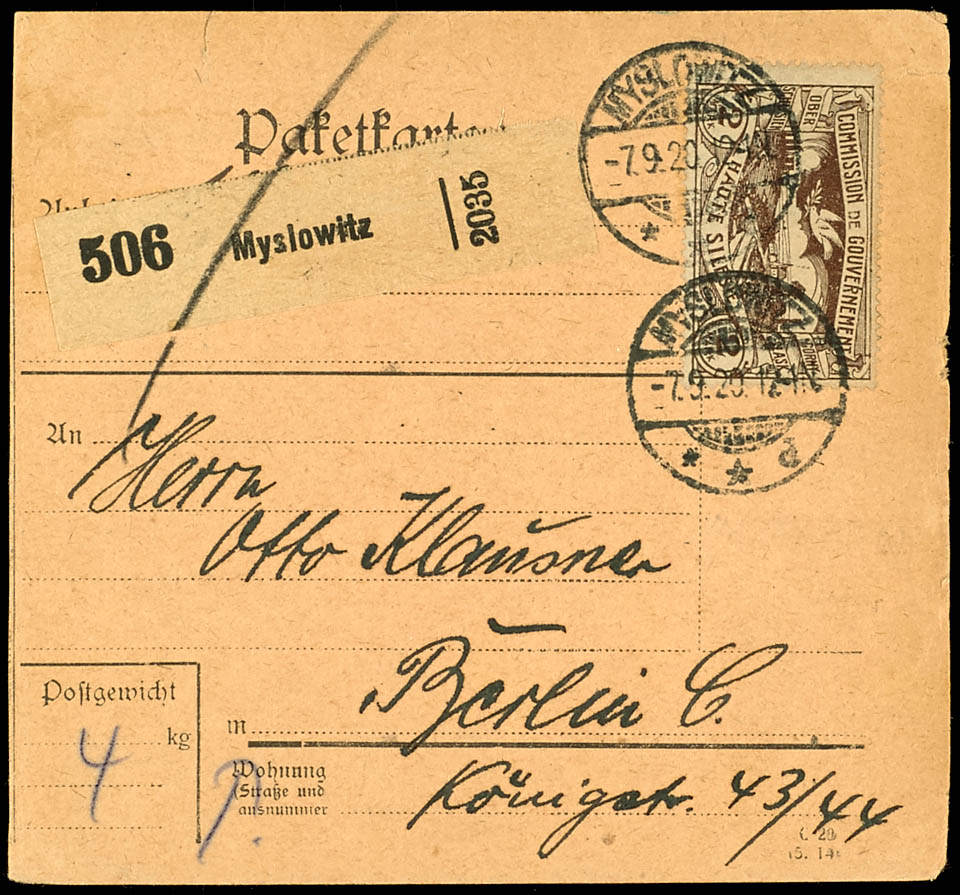 Paketkarte
506 Myslowitz 2035
MYSLOWITZ
-7.9.20.
COMMISSION DE GOUVERNEMENT
HAUTE SILÉ
OBER
2
2
MYSLOWITZ
-7.9.20. 12-1N.
An
Herrn
Otto Klausner
Berlin C.
Postgewicht
4 kg
P.
in
Wohnung
(Straße und
ausnummer
Königstr. 43/44
C 28
(5. 14)